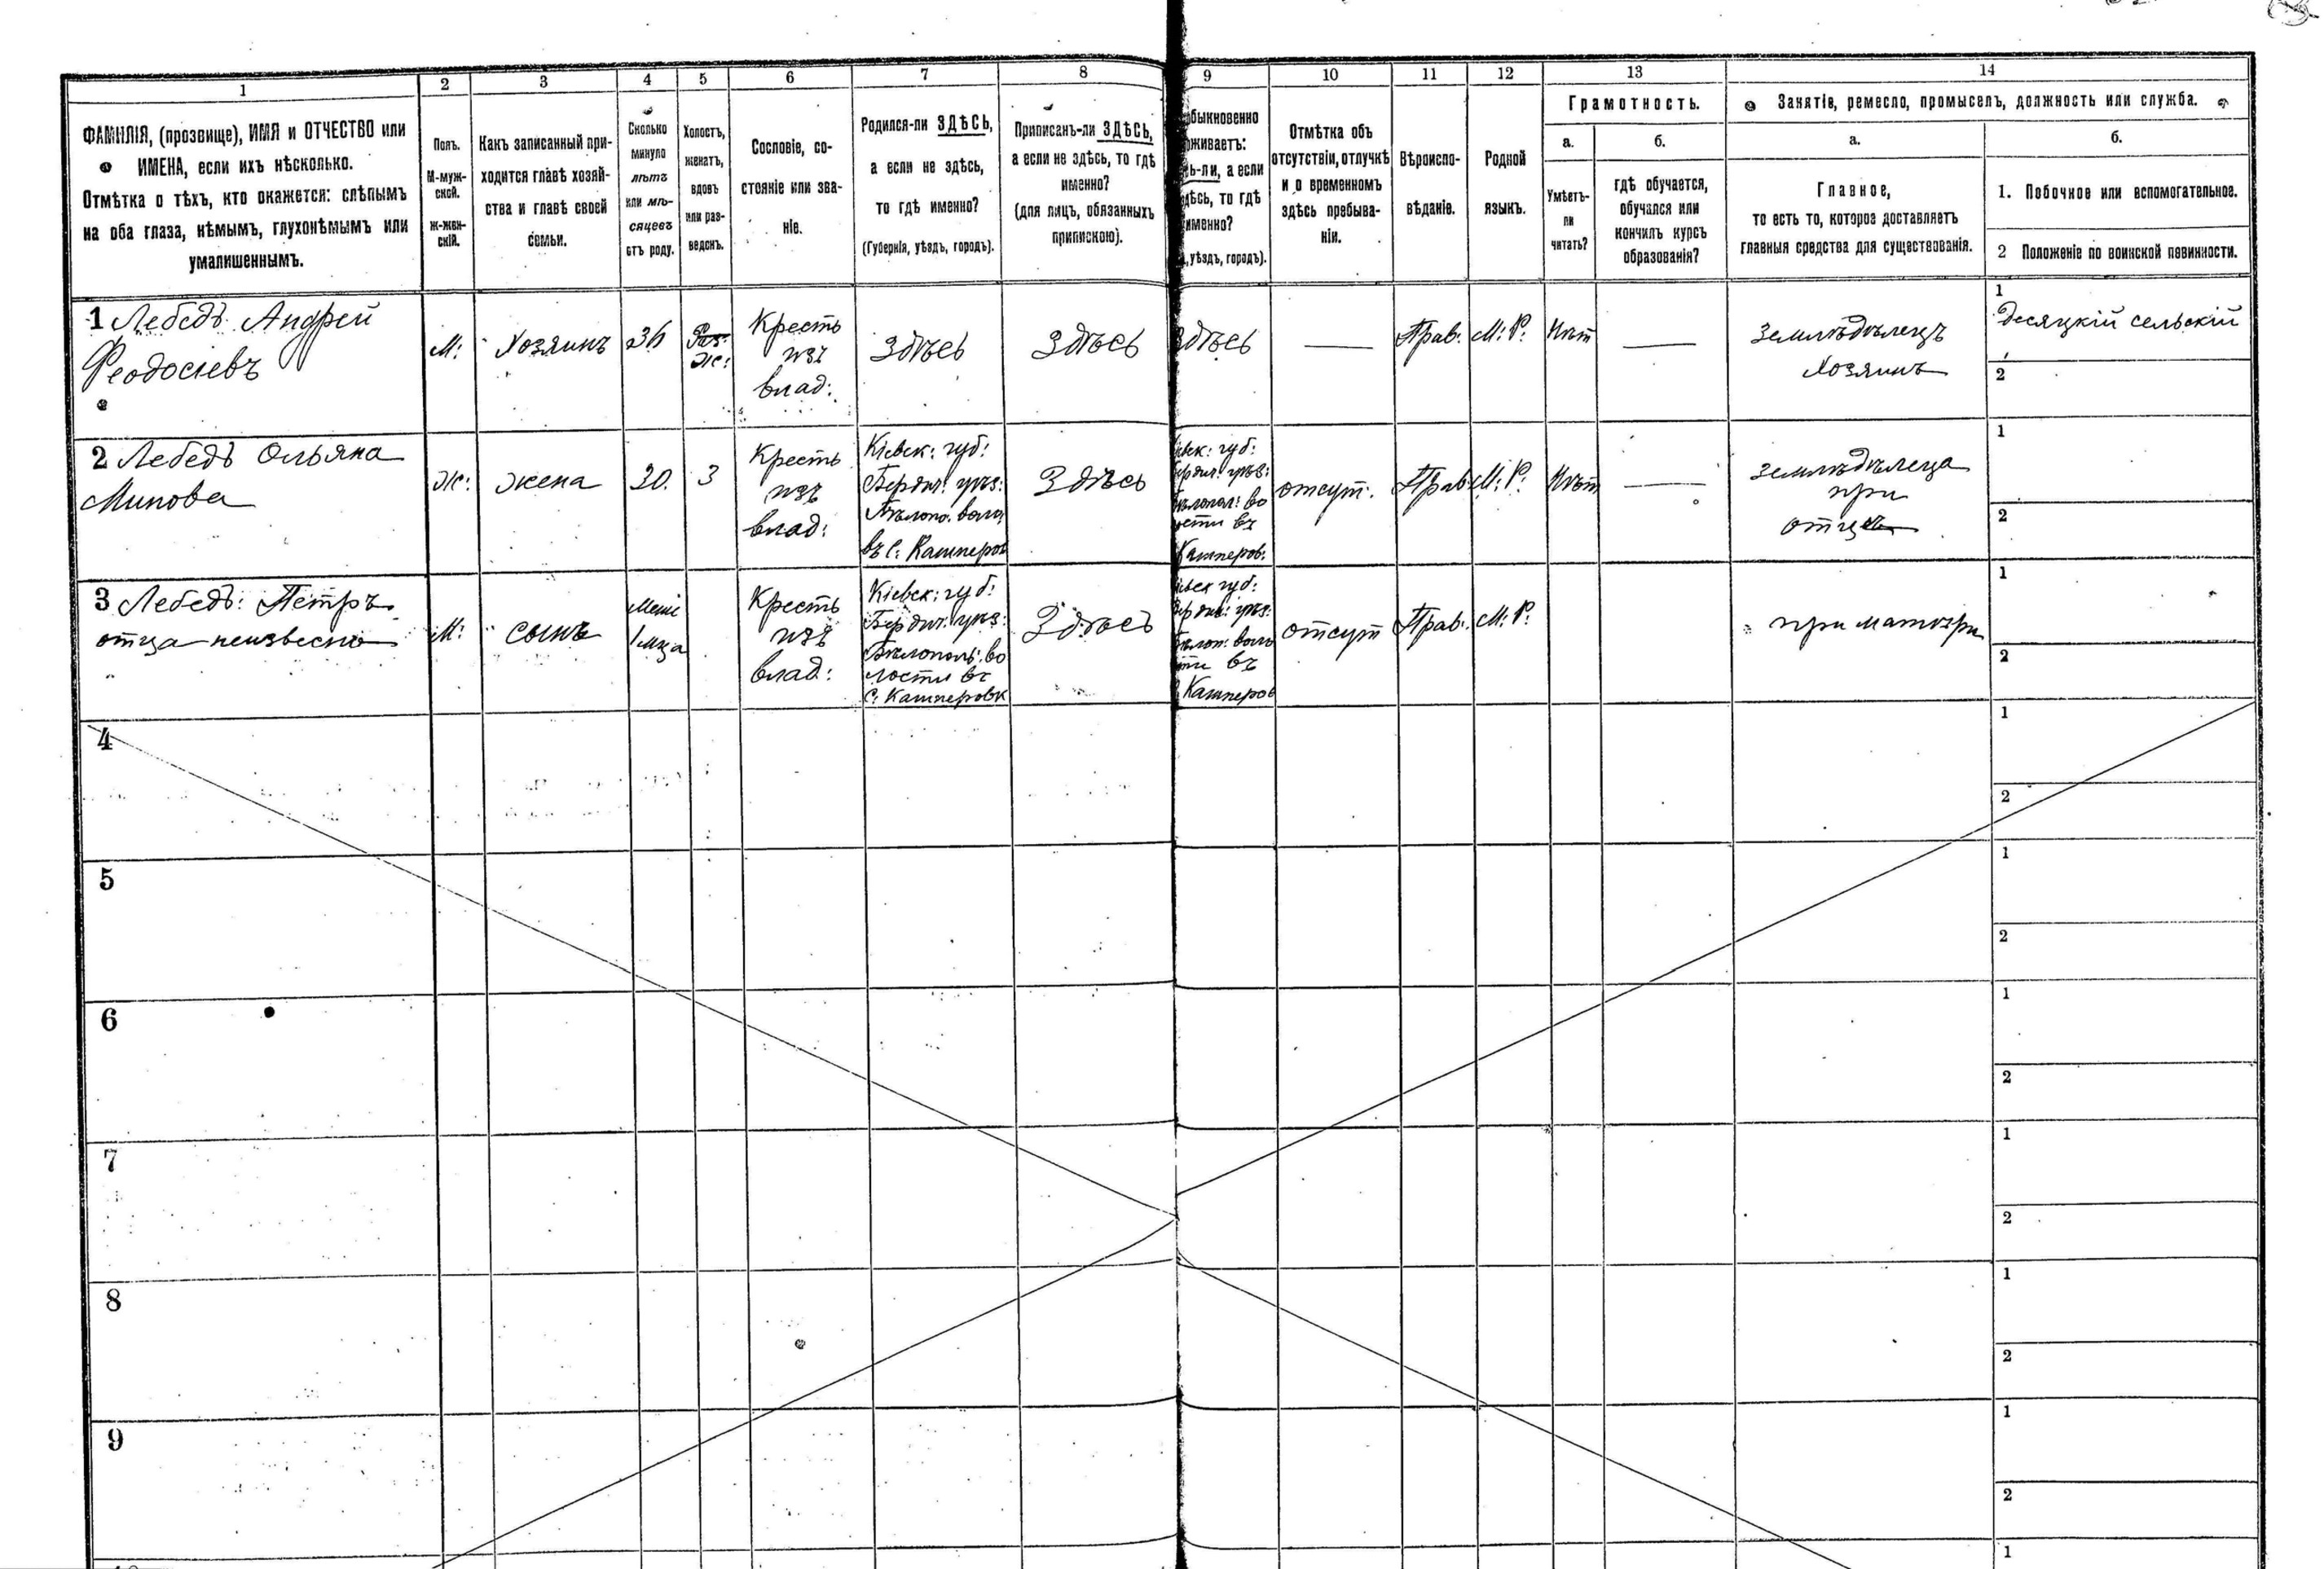 1 2 3 4 5 6 7 8 9 10 11 12 13 14
ФАМИЛІЯ, (прозвище), ИМЯ и ОТЧЕСТВО или
ИМЕНА, если ихъ нѣсколько.
Отмѣтка о тѣхъ, кто окажется: слѣпымъ
на оба глаза, нѣмымъ, глухонѣмымъ или
умалишеннымъ.
Полъ.
М-муж-
ской.
Ж-жен-
скій.
Какъ записанный при-
ходится главѣ хозяй-
ства и главѣ своей
семьи.
Сколько
минуло
лѣтъ
или мѣ-
сяцевъ
отъ роду.
Холостъ,
женатъ,
вдовъ
или раз-
веденъ.
Сословіе, со-
стояніе или зва-
ніе.
Родился-ли ЗДѢСЬ,
а если не здѣсь,
то гдѣ именно?
(Губернія, уѣздъ, городъ).
Приписанъ-ли ЗДѢСЬ,
а если не здѣсь, то гдѣ
именно?
(для лицъ, обязанныхъ
припискою).
быкновенно
оживаетъ:
ь-ли, а если
дѣсь, то гдѣ
именно?
, уѣздъ, городъ).
Отмѣтка объ
отсутствіи, отлучкѣ
и о временномъ
здѣсь пребыва-
ніи.
Вѣроиспо-
вѣданіе.
Родной
языкъ.
Грамотность.
а.
Умѣетъ-
ли
читать?
б.
гдѣ обучается,
обучался или
кончилъ курсъ
образованія?
Занятіе, ремесло, промыселъ, должность или служба.
а.
Главное,
то есть то, которое доставляетъ
главныя средства для существованія.
б.
1. Побочное или вспомогательное.
2 Положеніе по воинской повинности.
1 Лебедь Андрей
Феодосіевъ
М:
Хозяинъ
36
Раз:
Ж:
Кресть
изъ
влад:
Здѣсь
Здѣсь
Здѣсь
Прав:
М: Р:
Нѣт
Земледѣлецъ
Хозяинъ
1
Десяцкій сельскій
2
2 Лебедь Ольяна
Минова
Ж:
жена
30.
З
Кресть
изъ
влад:
Кіевск: губ:
Бердич: уѣз:
Бѣлопо. воло
въ С: Кашперов
Здѣсь
іевск: губ:
Бердич: уѣз:
Бѣлопол: во
ости въ
Кашперов:
отсут.
Прав
М: Р:
Нѣт
земледѣлеца
при
отцѣ
1
2
3 Лебедь: Петръ
отца неизвесно
М:
сынъ
1 мца
Кресть
изъ
влад:
Кіевск: губ:
Бердич: уѣз:
Бѣлополь: во
лости въ
С: Кашперовк
Здѣсь
іевск губ:
Бердич: уѣз:
Бѣлоп: воло
сти въ
Кашперов
отсут
Прав:
М: Р:
при матери
1
2
4
1
2
5
1
2
6
1
2
7
1
2
8
1
2
9
1
2
1